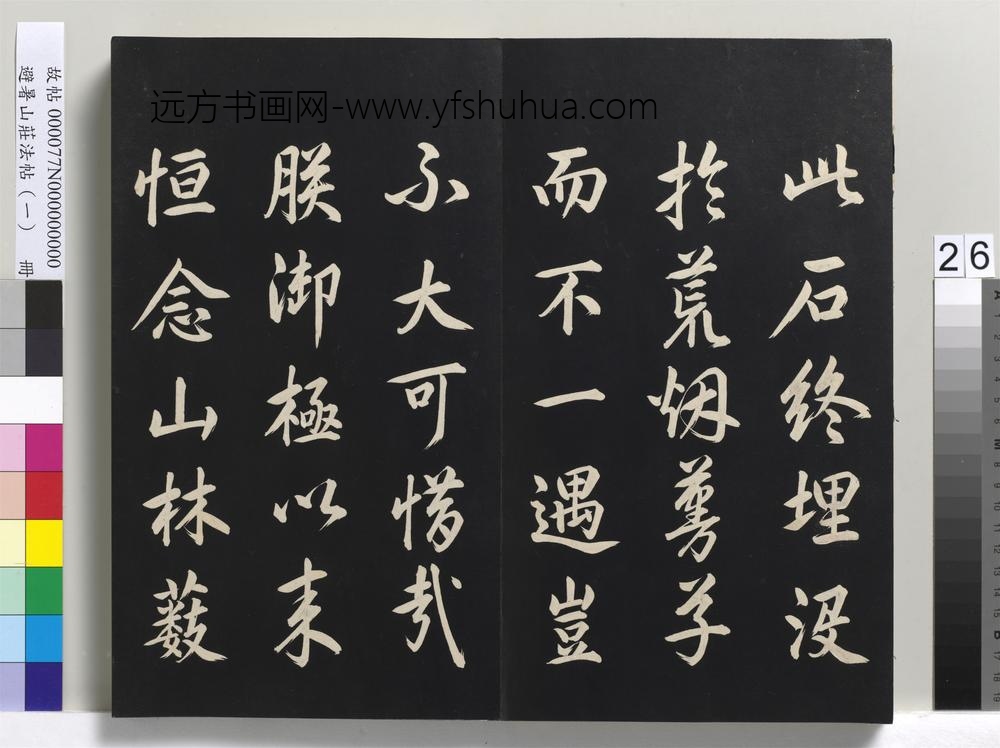 远方书画网-www.yfshuhua.com
此石終埋没
扵荒烟蔓草
而不一遇豈
不大可惜哉
朕御極以来
恒念山林藪
故帖 000077N000000000
避暑山莊法帖(一) 冊
26